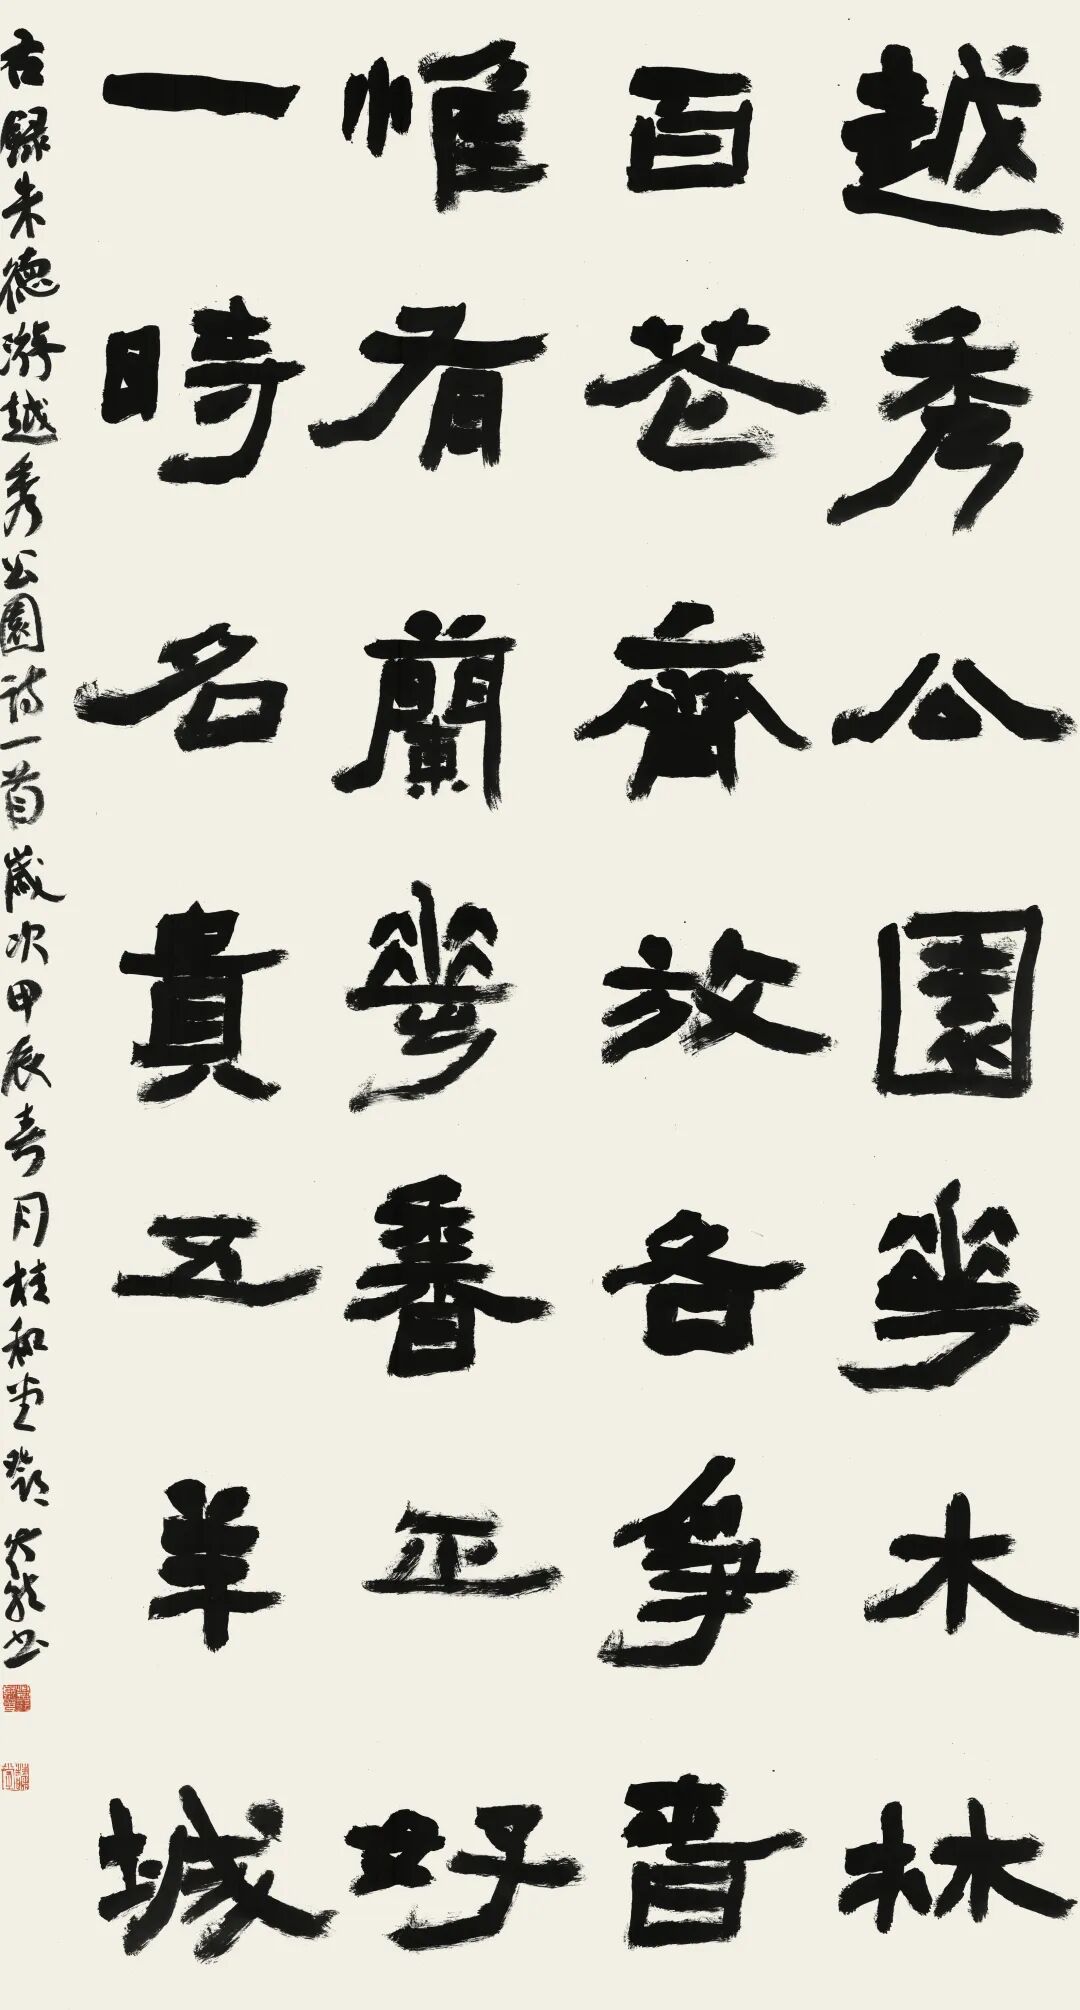 越秀公園華木林
百花齊放各爭春
惟有蘭華香正好
一時名貴五羊城
右録朱德游越秀公園詩一首歲次甲辰春月桂和堂鄧 书